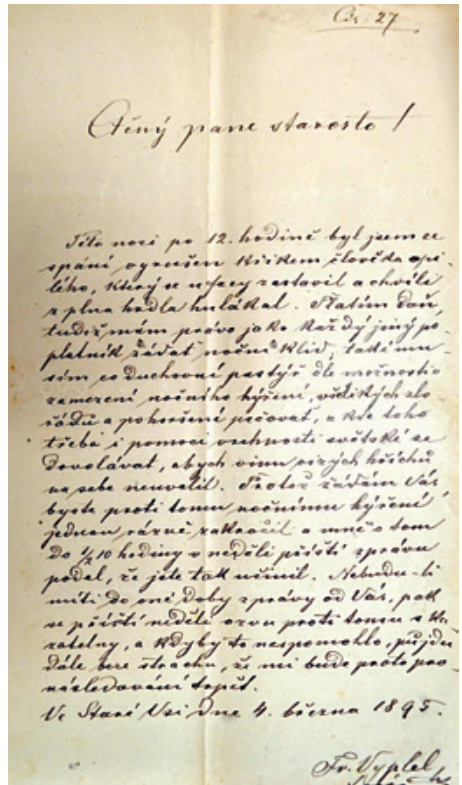 Čís. 27
Ctěný pane starosto!
Této noci po 12. hodině byl jsem ze
spání vyrušen křikem člověka opi-
lého, který se u fary zastavil a chvíli
z plna hrdla hulákal. Platím daň,
tudíž mám právo jako každý jiný po-
platník žádat noční klid, také mu-
sím co duchovní pastýř dle možnosti o
zamezení nočního hýření, všelikých zlo
řádů a pohoršení pečovat, a kde toho
třeba i pomoci vrchnosti světské se
dovolávat, abych vinu cizých hříchů
na sebe neuvalil. Protož žádám Vás,
byste proti tomu nočnímu hýření
jednou rázně zakročil a mně o tom
do 1/2 10 hodiny v neděli příští zprávu
podal, že jste tak učinil. Nebudu-li
míti do oné doby zprávy od Vás, pak
se příští neděle ozvu proti tomu s ka-
zatelny, a kdyby to nespomohlo, půjdu
dále beze strachu, že mi bude proto pro-
následování trpět.
Ve Staré Vsi dne 4. března 1895.
Fr. Vyplel